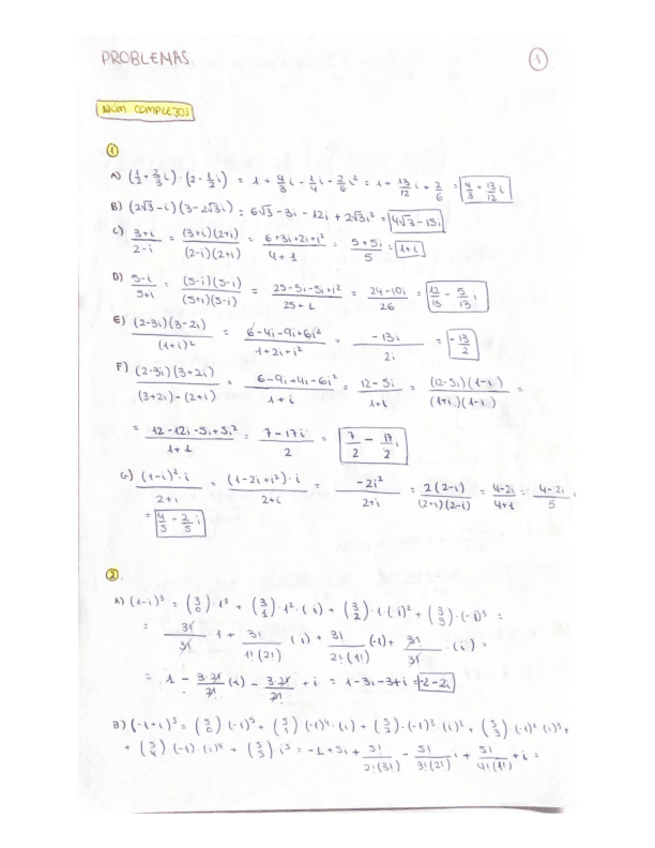 PROBLEMAS. 1
NÚM COMPLEJOS
1
A) (1/2 + 2/3 i) · (2 - 1/2 i) = 1 + 4/3 i - 1/4 i - 2/6 i² = 1 + 13/12 i + 2/6 = 4/3 + 13/12 i
B) (2√3 - i)(3 - 2√3 i) = 6√3 - 3i - 12i + 2√3 i² = 4√3 - 15i
C) (3+i)/(2-i) = (3+i)(2+i)/(2-i)(2+i) = (6+3i+2i+i²)/(4+1) = (5+5i)/5 = 1+i
D) (5-i)/(5+i) = (5-i)(5-i)/(5+i)(5-i) = (25-5i-5i+i²)/(25+1) = (24-10i)/26 = 12/13 - 5/13 i
E) (2-3i)(3-2i)/(1+i)² = (6-4i-9i+6i²)/(1+2i+i²) = -13i/2i = -13/2
F) (2-3i)(3+2i)/((3+2i)-(2+i)) = (6-9i+4i-6i²)/(1+i) = (12-5i)/(1+i) = (12-5i)(1-i)/(1+i)(1-i) =
= (12-12i-5i+5i²)/(1+1) = (7-17i)/2 = 7/2 - 17/2 i
G) (1-i)²·i/(2+i) = (1-2i+i²)·i/(2+i) = -2i²/(2+i) = 2(2-i)/(2+i)(2-i) = (4-2i)/(4+1) = (4-2i)/5 =
= 4/5 - 2/5 i
2.
A) (1-i)³ = (3 0)·1³ + (3 1)·1²·(i) + (3 2)·1·(i)² + (3 3)·(-i)³ =
= 3!/3! · 1 + 3!/1!(2!) (i) + 3!/2!(1!) (-1) + 3!/3! · (i) =
= 1 - 3·2!/2! (i) - 3·2!/2! + i = 1-3i-3+i = -2-2i
B) (-1+i)⁵ = (5 0)(-1)⁵ + (5 1)(-1)⁴·(i) + (5 2)·(-1)³(i)² + (5 3)·(-1)²(i)³ +
+ (5 4)(-1)·(i)⁴ + (5 5) i⁵ = -1+5i+ 5!/2!(3!) - 5!/3!(2!) i + 5!/4!(1!) + i =